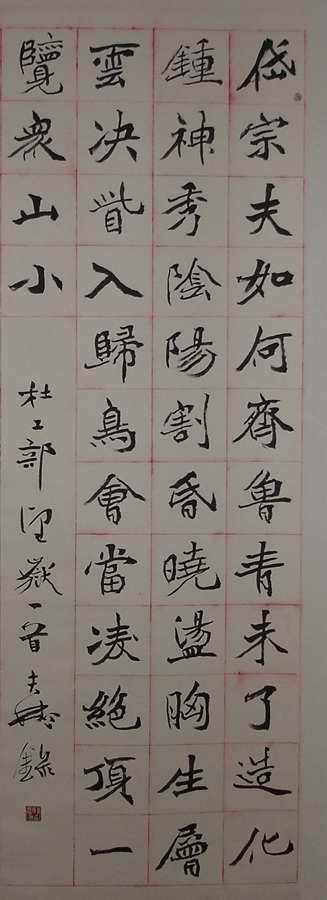 岱宗夫如何齊魯青未了造化
鍾神秀陰陽割昏曉盪胸生層
雲决眥入歸鳥會當凌絕頂一
覽眾山小
杜工部望嶽一首錄